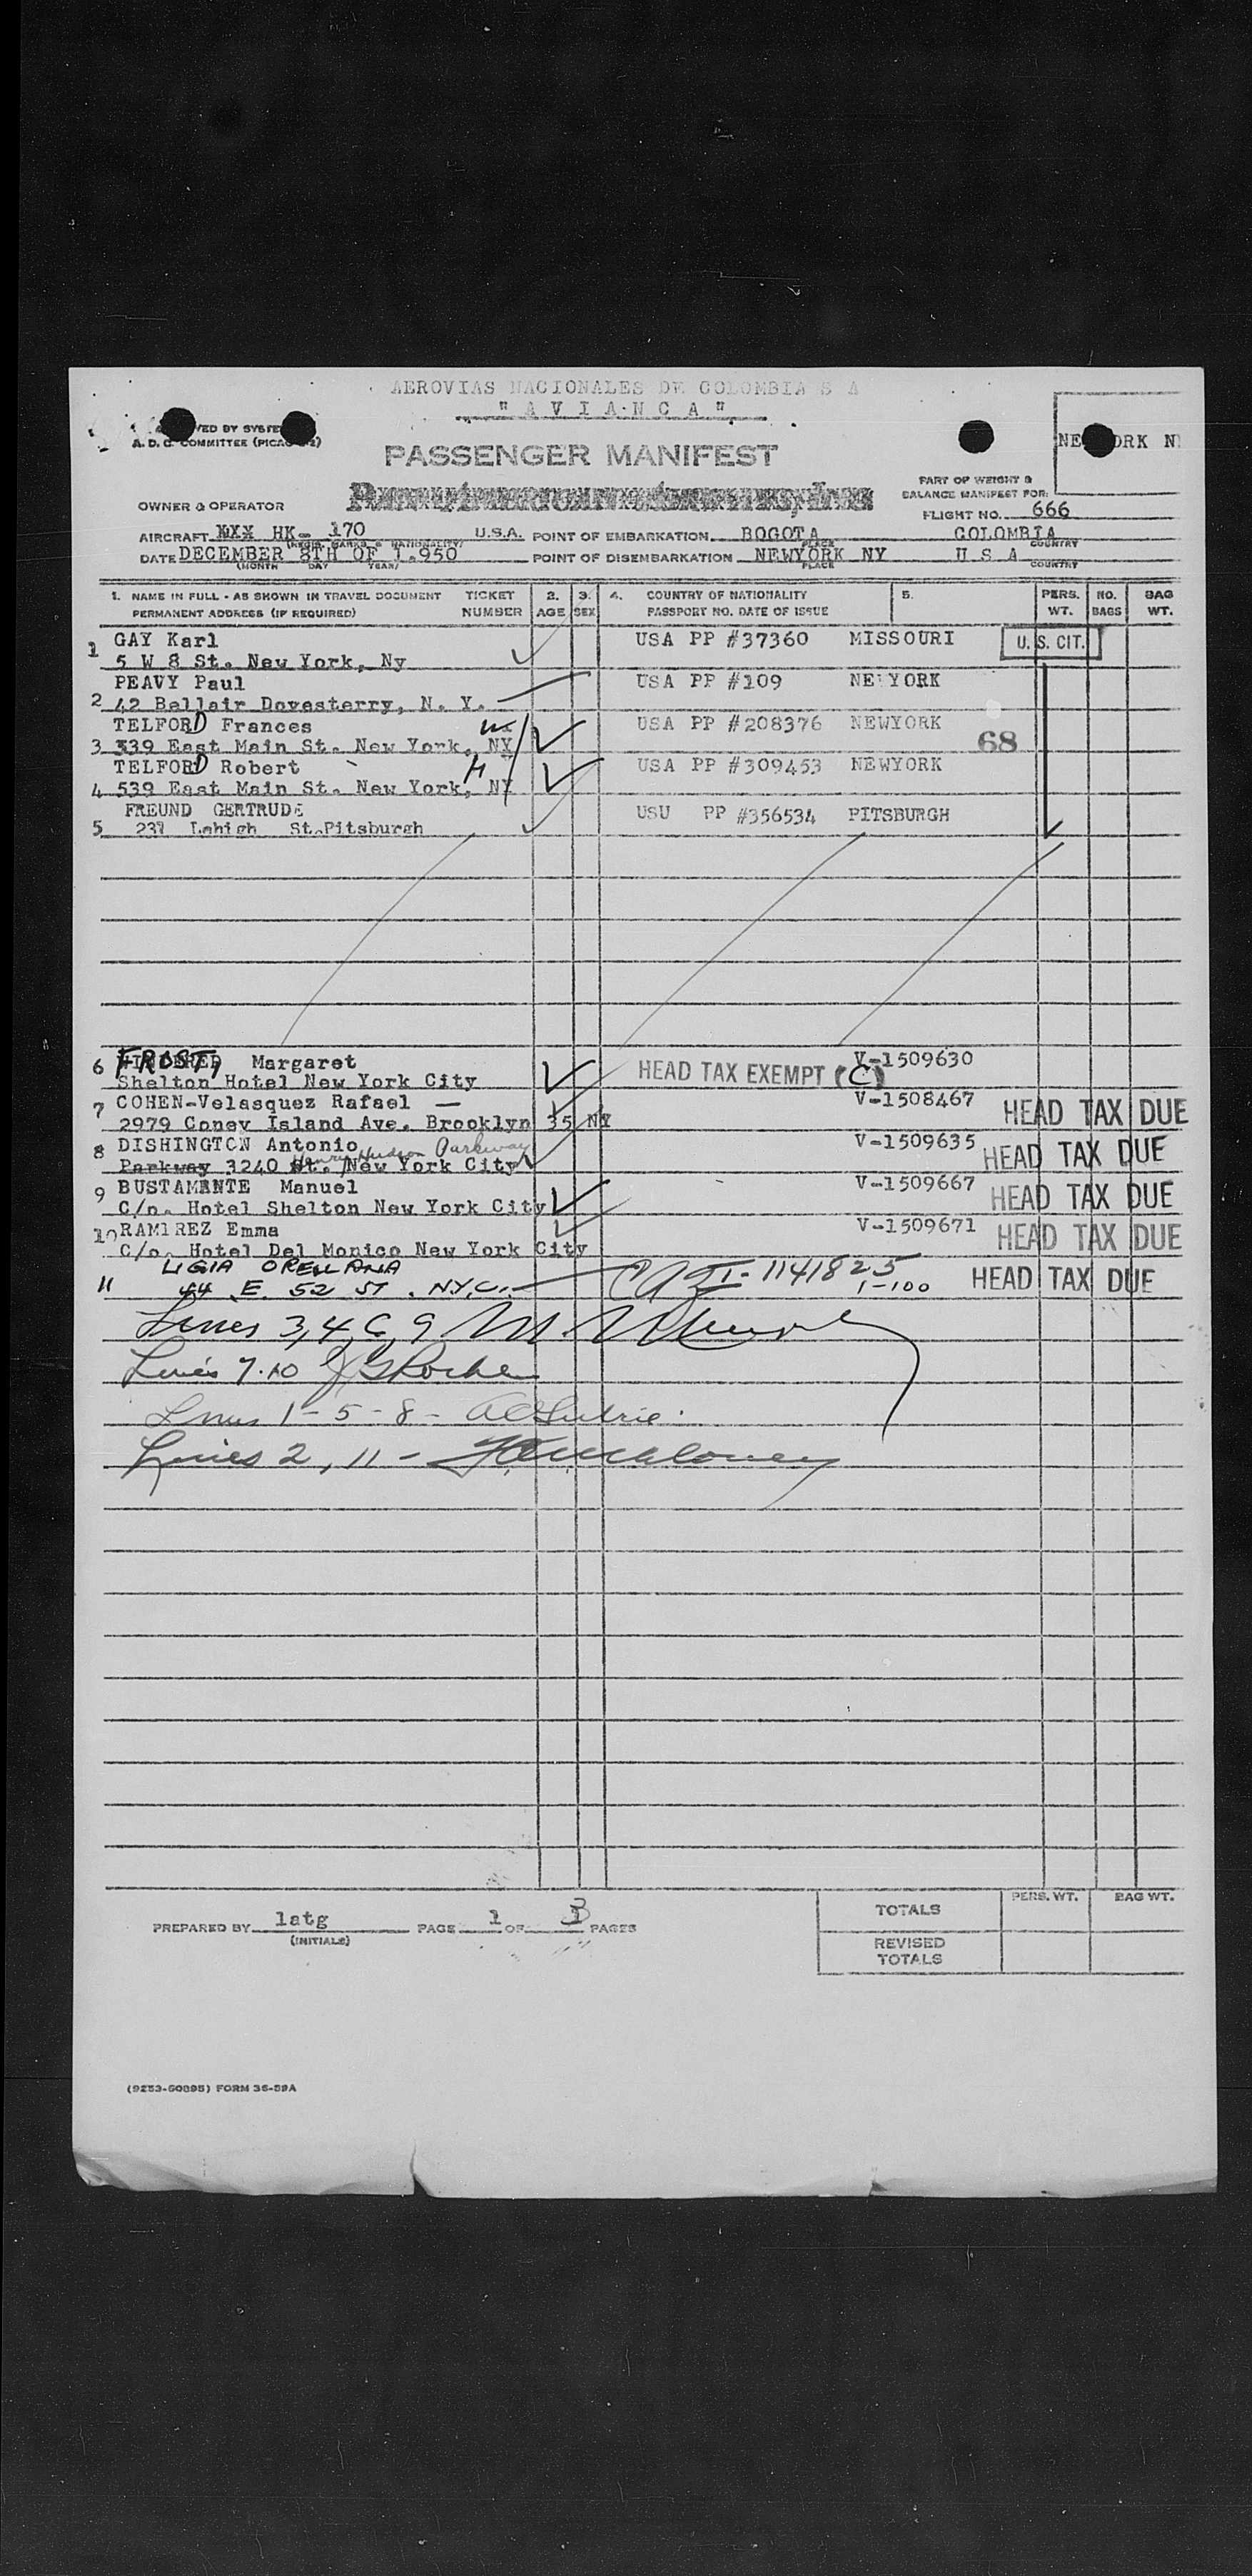 AEROVIAS NACIONALES DE COLOMBIA S A
"AVIANCA"
VED BY SYSTE
A. D. C. COMMITTEE (PICAO
NE ORK N
PASSENGER MANIFEST
PART OF WEIGHT &
BALANCE MANIFEST FOR:
OWNER & OPERATOR
FLIGHT NO. 666
AIRCRAFT NXX HK- 170 U.S.A. POINT OF EMBARKATION BOGOTA COLOMBIA
(REGIS. MARKS & NATIONALITY) PLACE COUNTRY
DATE DECEMBER 8TH OF 1.950 POINT OF DISEMBARKATION NEWYORK NY U S A
(MONTH DAY YEAR) PLACE COUNTRY
1. NAME IN FULL - AS SHOWN IN TRAVEL DOCUMENT TICKET 2. 3. 4. COUNTRY OF NATIONALITY 5. PERS. NO. BAG
PERMANENT ADDRESS (IF REQUIRED) NUMBER AGE SEX PASSPORT NO. DATE OF ISSUE WT. BAGS WT.
1 GAY Karl USA PP #37360 MISSOURI U. S. CIT.
5 W 8 St. New York, Ny
PEAVY Paul USA PP #109 NEWYORK
2 42 Bellair Dovesterry, N. Y.
TELFORD Frances USA PP #208376 NEWYORK
3 539 East Main St. New York, NY 68
TELFORD Robert H USA PP #309453 NEWYORK
4 539 East Main St. New York, NY
FREUND GERTRUDE USU PP #356534 PITSBURGH
5 237 Lehigh St.Pitsburgh
6 FROST, Margaret HEAD TAX EXEMPT (C) V-1509630
Shelton Hotel New York City
7 COHEN-Velasquez Rafael — V-1508467 HEAD TAX DUE
2979 Coney Island Ave. Brooklyn 35 NY
8 DISHINGTON Antonio V-1509635 HEAD TAX DUE
Parkway 3240 St. Henry Hudson Parkway New York City
9 BUSTAMENTE Manuel V-1509667 HEAD TAX DUE
C/o. Hotel Shelton New York City
10 RAMIREZ Emma V-1509671 HEAD TAX DUE
C/o. Hotel Del Monico New York City
LIGIA ORELLANA
11 44 E. 52 ST. N.Y.C. I-1141825 HEAD TAX DUE
1-100
Lines 3,4,6,9
Lines 7.10
Lines 1-5-8-
Lines 2, 11-
PREPARED BY latg PAGE 1 OF 3 PAGES
(INITIALS)
PERS. WT. BAG WT.
TOTALS
REVISED
TOTALS
(9253-60895) FORM 36-59A